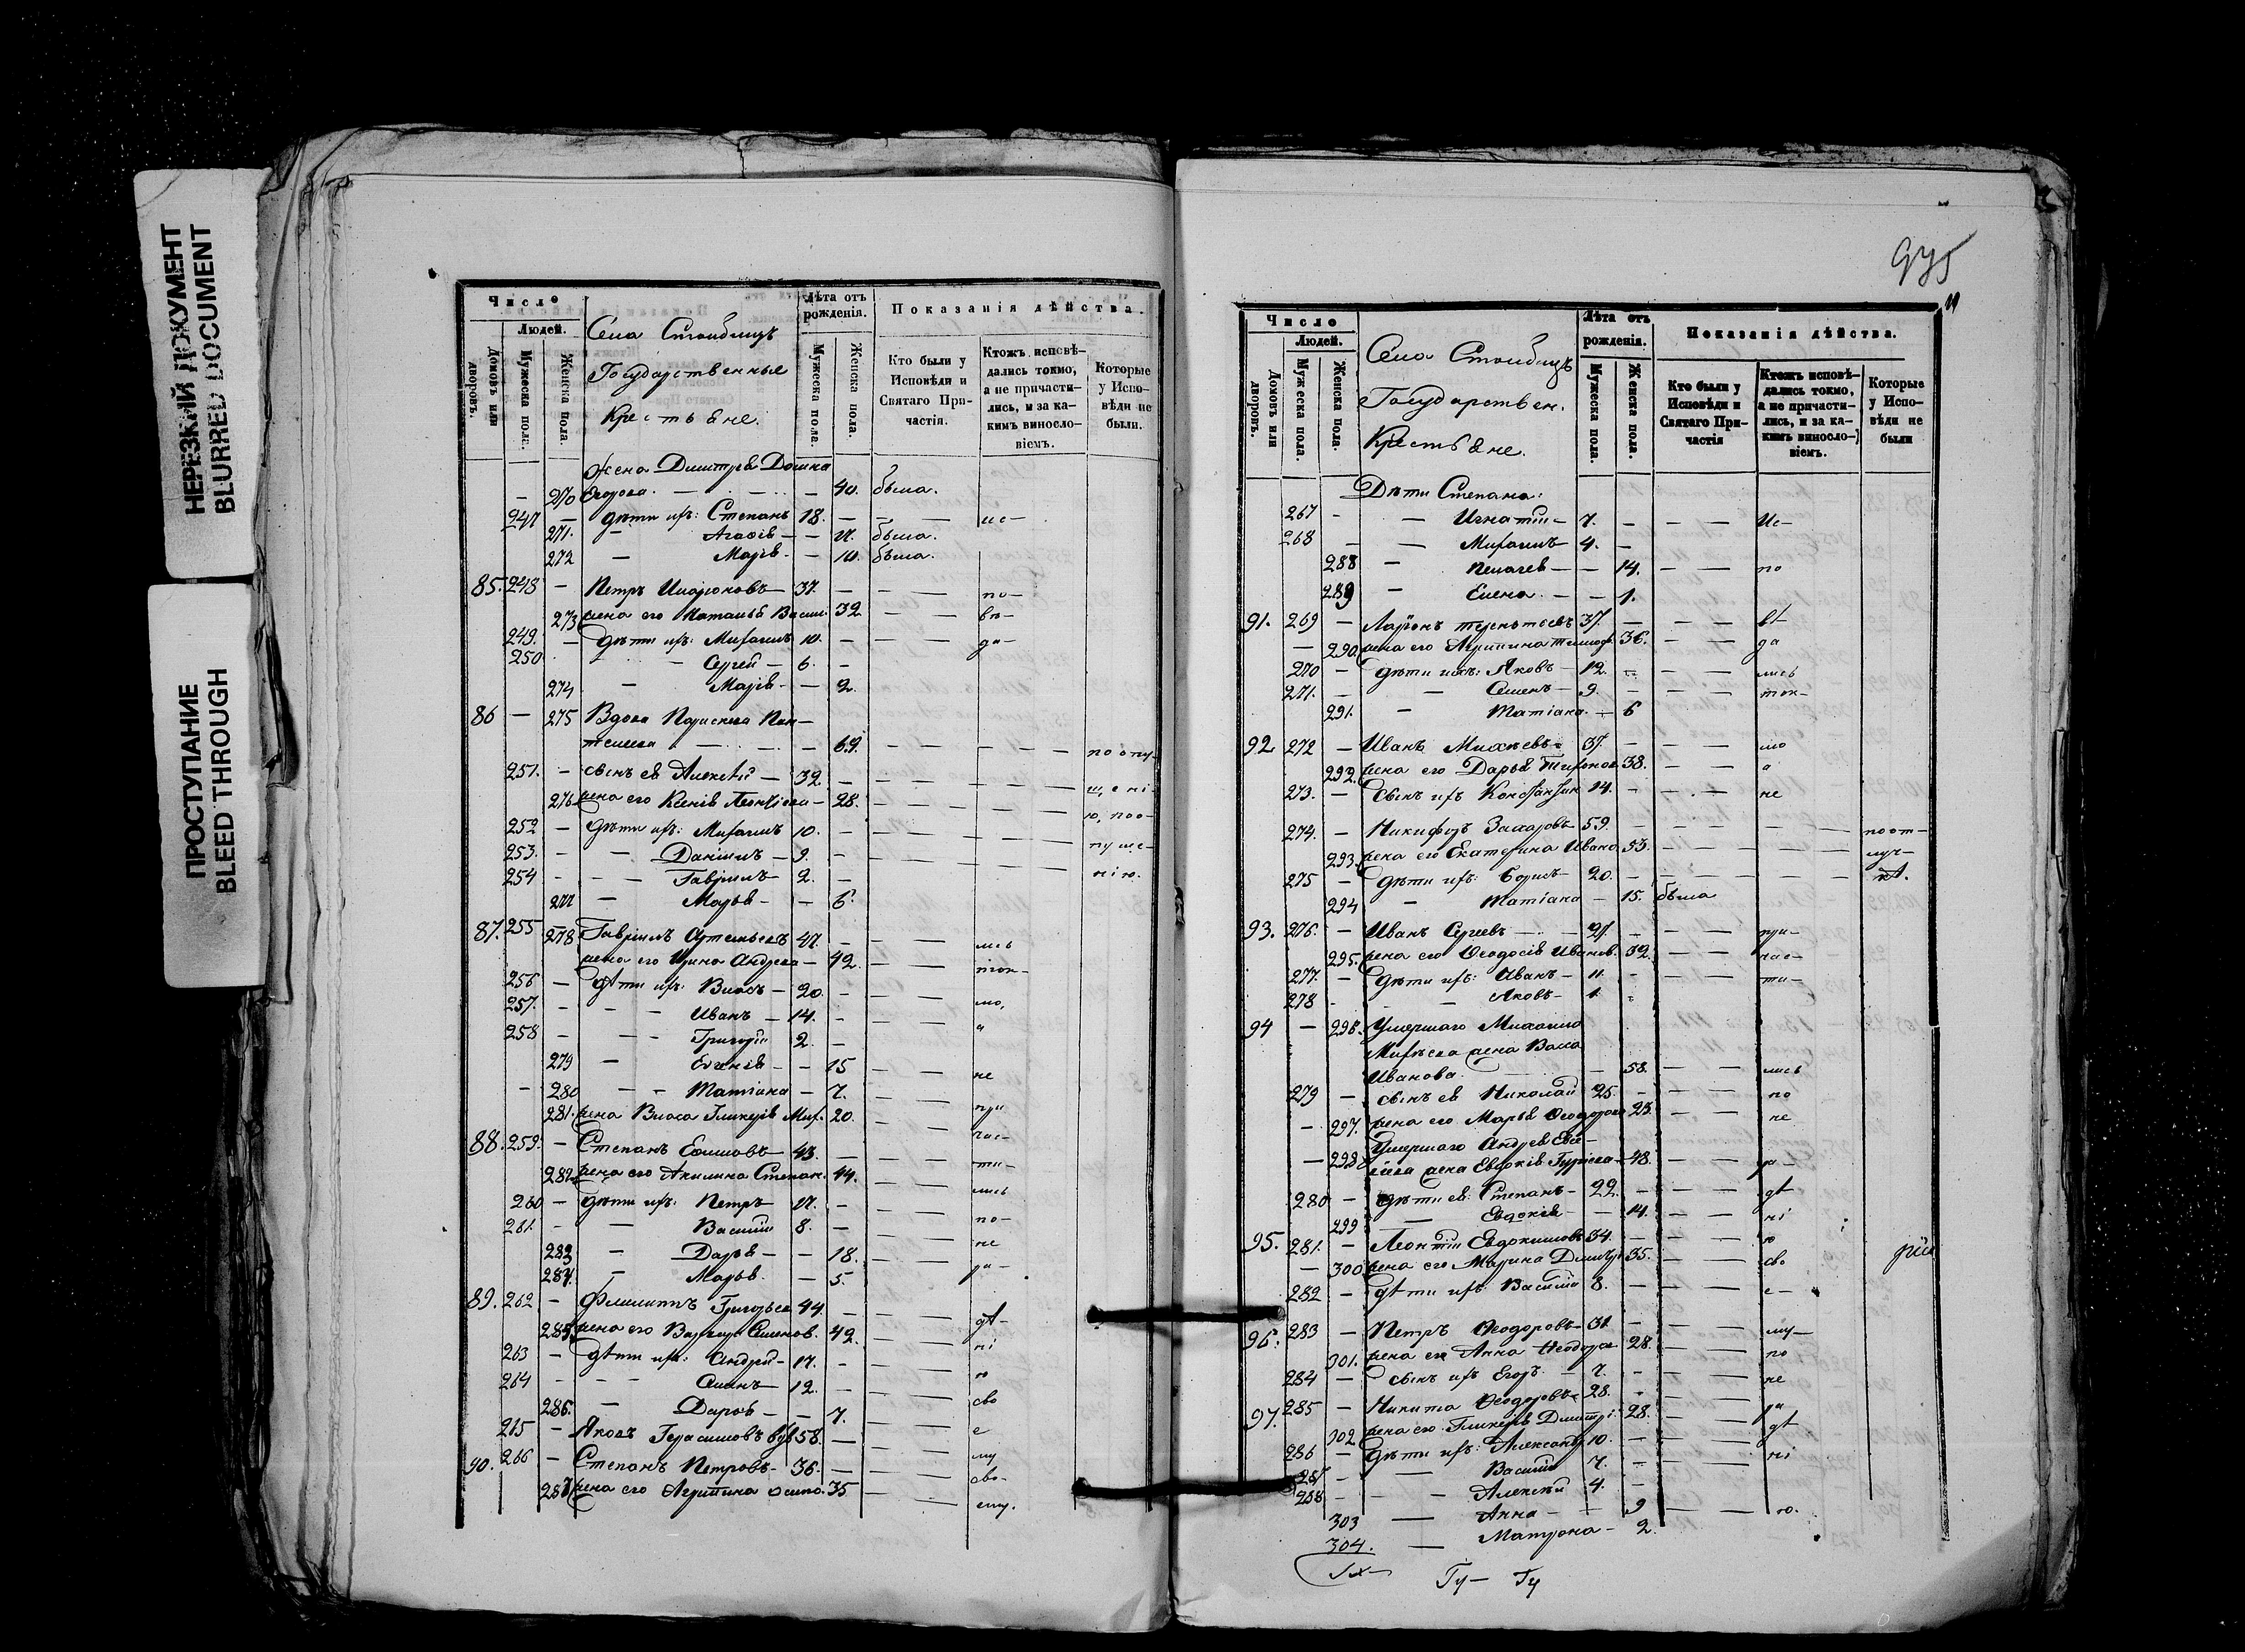 НЕРЕЗКИЙ ДОКУМЕНТ
BLURRED DOCUMENT
ПРОСТУПАНИЕ
BLEED THROUGH
Число
Людей.
Домовъ или дворовъ.
Мужеска пола.
Женска пола.
Села Столбищъ
Государственные
Крестьяне.
Лѣта отъ рожденія.
Мужеска пола.
Женска пола.
Показанія дѣйства.
Кто были у Исповѣди и Святаго Причастія.
Ктожъ исповѣдались токмо, а не причастились, и за какимъ винословіемъ.
Которые у Исповѣди не были.
жена Димитрія Домна
— 270 Егорова — — 40. была.
247 — дѣти ихъ: Степанъ 18. — — ис—
271. — Агафія — — была.
272 — Марія — — 10. была.
85. 248 — Петръ Иларіоновъ — 37. — — — по—
273 жена его Наталья Васил. 32 — — вѣ—
249. — дѣти ихъ: Михаилъ 10. — — — да—
250 — Сергей — 6. —
274 — Марія — — 2.
86 — 275 Вдова Параскева Пан—
телеева — — — 69. — — — — по опу-
251. — сынъ ея Алексѣй — 32. — — — — — щені-
276 жена его Ксенія Леонтіева — 28. — — — — ю, поо—
252 — дѣти ихъ: Михаилъ 10. — — — — — пуще—
253. — — Даніилъ — 9. — — — нію.
254 — — Гавріилъ — 2. —
277 — Марья — — 6.
87. 255 278 Гавріилъ Артемьевъ 47. — — — лись
жена его Ирина Андреева — 42. — — ток—
256 — дѣти ихъ: Власъ — 20. — — — мо,
257. — — Иванъ — 14. — — — а
258 — — Григорій 2. —
279 — Евгенія — — 15 — — не
— 280 — — Татіана — 7. — — при
281. жена Власа Гликерія Мих. 20. — — час—
88. 259. — Степанъ Ефимовъ — 43. — — — ти—
282 жена его Акилина Степан. 44. — — лись
260 — дѣти ихъ: Петръ — 17. — — — по—
261. — — Василій 8. — — — не
283 — Дарья — — 18. — — ра—
284. — Марья. — 5.
89. 262 — Филиппъ Григорьев 44. — — — дѣ—
285. жена его Варвара Семенов. 42. — — ні
263 — дѣти ихъ: Андрей — 17. — — — ю
264 — — Семенъ — 12. — — — сво
286. — Дарья — — 7. — — е
265 — Яковъ Герасимовъ вдв 58. — — — му
90. 266 — Степанъ Петровъ — 36. — — — сво-
287 жена его Агрипина Осипо. 35 — — ему.
975
Число
Людей.
Домовъ или дворовъ.
Мужеска пола.
Женска пола.
Села Столбищъ
Государствен.
Крестьяне.
Лѣта отъ рожденія.
Мужеска пола.
Женска пола.
Показанія дѣйства.
Кто были у Исповѣди и Святаго Причастія
Ктожъ исповѣдались токмо, а не причастились, и за какимъ винословіемъ.
Которые у Исповѣди не были
Дѣти Степана:
267 — — Игнатій — 7. — — — Ис—
268 — — Михаилъ — 4. —
288 — Пелагея — — 14. — — по
289 — Елена. — — 1.
91. 269 — Ларіонъ Терентьевъ 37. — — — вѣ—
— 290. жена его Агрипина Тимоф. 36. — — да
270 — дѣти ихъ: Яковъ — 12. — — — лись
271. — — Семенъ — 9. — — — ток—
291. — Татіана. — 6
92. 272 — Иванъ Михѣевъ — 37. — — — мо
292. жена его Дарья 38. — — а
273. — Сынъ ихъ Константин 14. — — — не
274. — Никифоръ Захаровъ 59. — — — — по от—
293. жена его Екатерина Ивано. 53. — — — луч—
275 — дѣти ихъ: Борисъ — 20. — — — —
294 — Татіана — 15. была
93. 276. — Иванъ Сергеевъ — 27. — — — при—
295. жена его Ѳеодосія Иванов. 32. — — час—
277. — дѣти ихъ: Иванъ — 11. — — — ти—
278 — — Яковъ — 1. —
94 — 296. Умершаго Михаила
Михѣева жена Васса
Иванова. — — 58. — — лись
279 — сынъ ея Николай 25. — — — по
— 297. жена его Марья Ѳеодорова 23. — — не
Умершаго Андрея Евс—
— 298 жена Евдокія Гурьева — 48. — — ра—
280 — дѣти ея: Степанъ — 22. — — — дѣ
299 — Евдокія — — 14. — — ні
95. 281. — Леонтій Евдокимовъ 34. — — — ю
— 300 жена его Марина Димитр. 35. — — сво
282 — дѣти ихъ: Василій 8. — — — е—
96. 283 — Петръ Ѳеодоровъ — 31. — — — му—
301. жена его Анна Ѳеодоро 28. — — по
284 — сынъ ихъ Егоръ. — 7. — — — не
97. 285 — Никита Ѳеодоровъ — 28. — — — ра
302 жена его Гликерія Димитрі. 28. — — дѣ
286 — дѣти ихъ: Александр 10. — — — ні
287 — — Василій 7. —
288 — — Алексѣй 4. —
303 — Анна — — 9 — — ю.
304. — Матрона — 2.